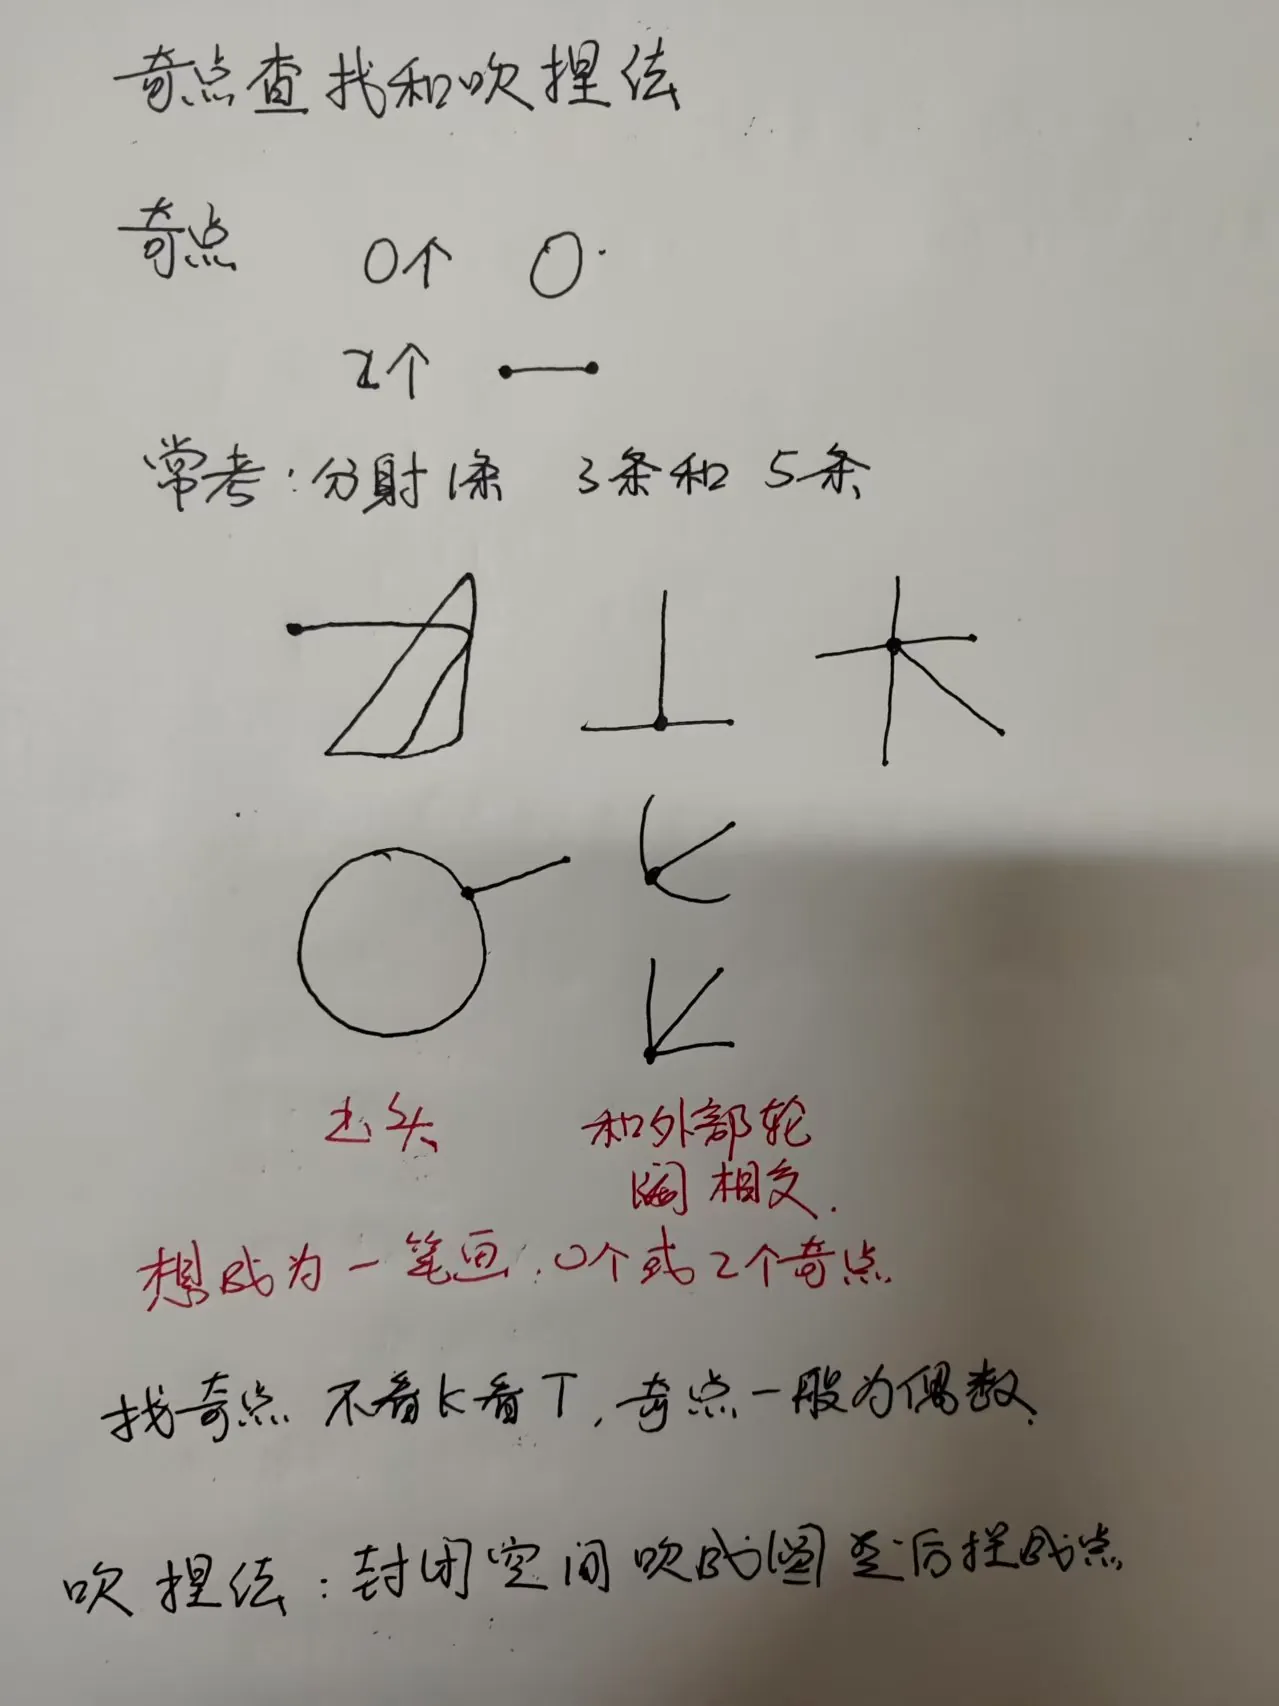 奇点查找和吹捏法
奇点 0个
2个
常考:分射1条 3条和5条
出头 和外部轮
阔相交.
想成为一笔画:0个或2个奇点
找奇点 不看K看T,奇点一般为偶数.
吹捏法:封闭空间吹成圆 然后捏成点